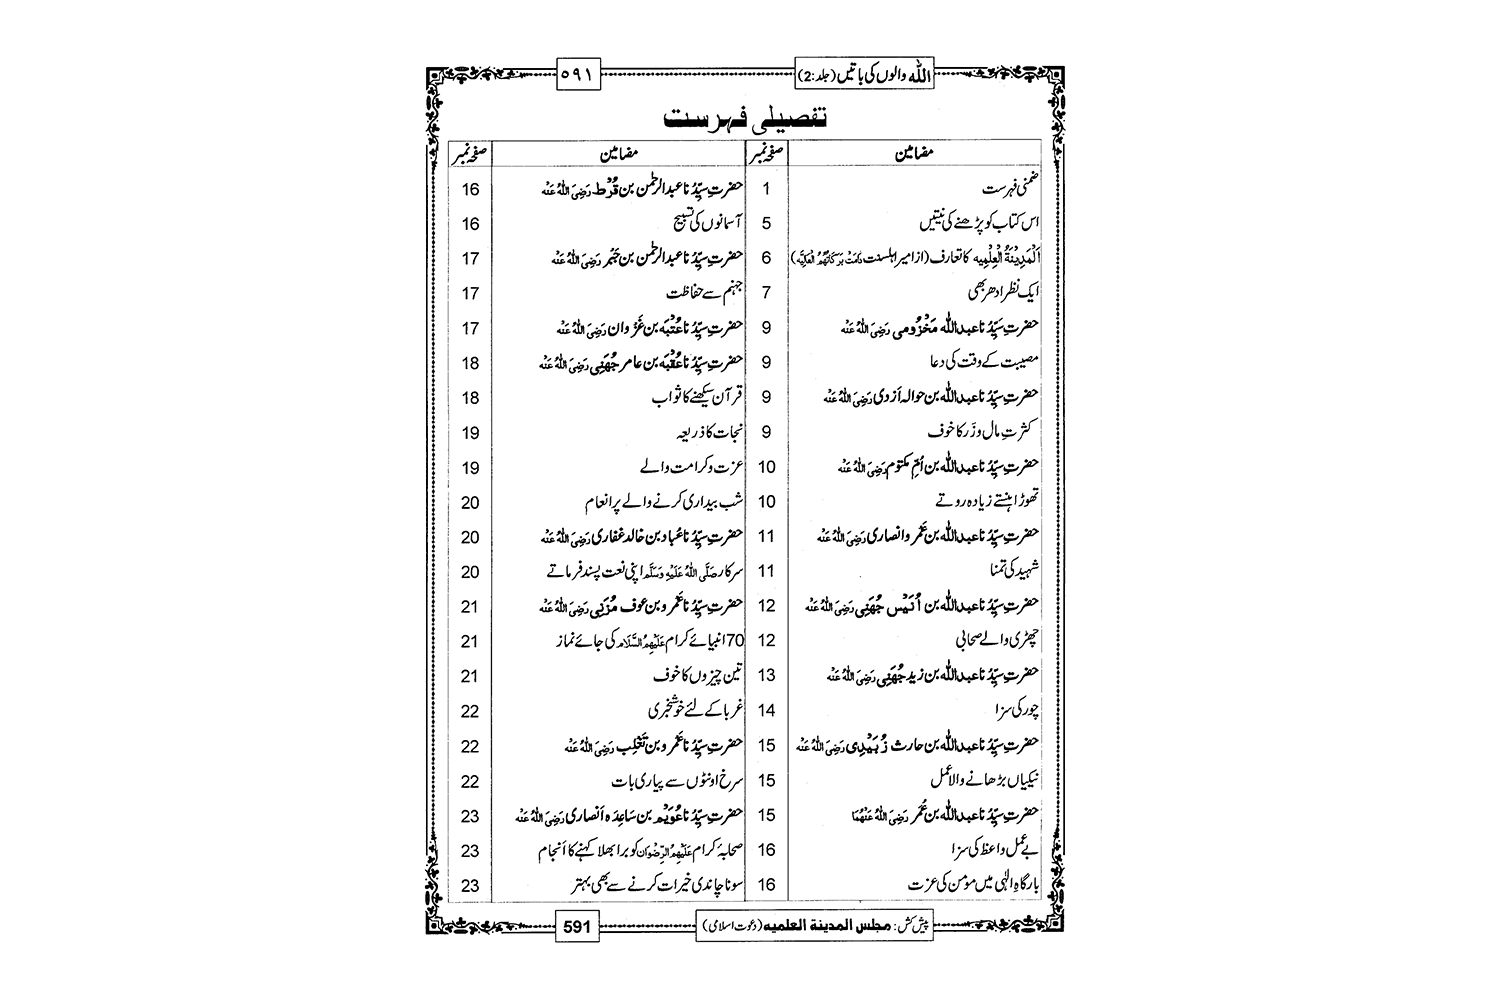 الله والوں کی باتیں (جلد:2)
٥٩١
تفصیلی فہرست
مضامین
صفحہ نمبر
مضامین
صفحہ نمبر
ضمنی فہرست 1
اس کتاب کو پڑھنے کی نیتیں 5
اَلْمَدِیْنَۃُ الْعِلْمِیہ کا تعارف (از امیر اہلسنت دَامَتْ بَرَکَاتُہُمُ الْعَالِیَہ) 6
ایک نظر ادھر بھی 7
حضرتِ سیِّدُنا عبداللہ مَخْزُومی رَضِیَ اللہُ عَنْہُ 9
مصیبت کے وقت کی دعا 9
حضرتِ سیِّدُنا عبداللہ بن حوالہ اَزدی رَضِیَ اللہُ عَنْہُ 9
کثرتِ مال و زَر کا خوف 9
حضرتِ سیِّدُنا عبداللہ بن اُمِّ مکتوم رَضِیَ اللہُ عَنْہُ 10
تھوڑا ہنستے زیادہ روتے 10
حضرتِ سیِّدُنا عبداللہ بن عَمْرو انصاری رَضِیَ اللہُ عَنْہُ 11
شہید کی تمنا 11
حضرتِ سیِّدُنا عبداللہ بن اُنَیْس جُھَنِی رَضِیَ اللہُ عَنْہُ 12
چھڑی والے صحابی 12
حضرتِ سیِّدُنا عبداللہ بن زید جُھَنِی رَضِیَ اللہُ عَنْہُ 13
چور کی سزا 14
حضرتِ سیِّدُنا عبداللہ بن حارث زُبَیْدِی رَضِیَ اللہُ عَنْہُ 15
نیکیاں بڑھانے والا عمل 15
حضرتِ سیِّدُنا عبداللہ بن عُمَر رَضِیَ اللہُ عَنْہُمَا 15
بے عمل واعظ کی سزا 16
بارگاہِ الٰہی میں مومن کی عزت 16
حضرتِ سیِّدُنا عبدالرحمٰن بن قُرْط رَضِیَ اللہُ عَنْہُ 16
آسمانوں کی تسبیح 16
حضرتِ سیِّدُنا عبدالرحمٰن بن جَبْر رَضِیَ اللہُ عَنْہُ 17
جہنم سے حفاظت 17
حضرتِ سیِّدُنا عُتْبَہ بن غَزْوان رَضِیَ اللہُ عَنْہُ 17
حضرتِ سیِّدُنا عُقْبَہ بن عامر جُھَنِی رَضِیَ اللہُ عَنْہُ 18
قرآن سیکھنے کا ثواب 18
نجات کا ذریعہ 19
عزت و کرامت والے 19
شب بیداری کرنے والے پر انعام 20
حضرتِ سیِّدُنا عُباد بن خالد غفاری رَضِیَ اللہُ عَنْہُ 20
سرکار صَلَّی اللہُ عَلَیْہِ وَسَلَّم اپنی نعت پسند فرماتے 20
حضرتِ سیِّدُنا عَمْرو بن عوف مُزَنِی رَضِیَ اللہُ عَنْہُ 21
70 انبیائے کرام عَلَیْہِمُ السَّلَام کی جائے نماز 21
تین چیزوں کا خوف 21
غربا کے لئے خوشخبری 22
حضرتِ سیِّدُنا عَمْرو بن تَغْلِب رَضِیَ اللہُ عَنْہُ 22
سرخ اونٹوں سے پیاری بات 22
حضرتِ سیِّدُنا عُوَیْم بن سَاعِدَہ اَنصاری رَضِیَ اللہُ عَنْہُ 23
صحابۂ کرام عَلَیْہِمُ الرِّضْوَان کو برا بھلا کہنے کا اَنجام 23
سونا چاندی خیرات کرنے سے بھی بہتر 23
پیش کش: مجلس المدینۃ العلمیہ (دعوت اسلامی)
591